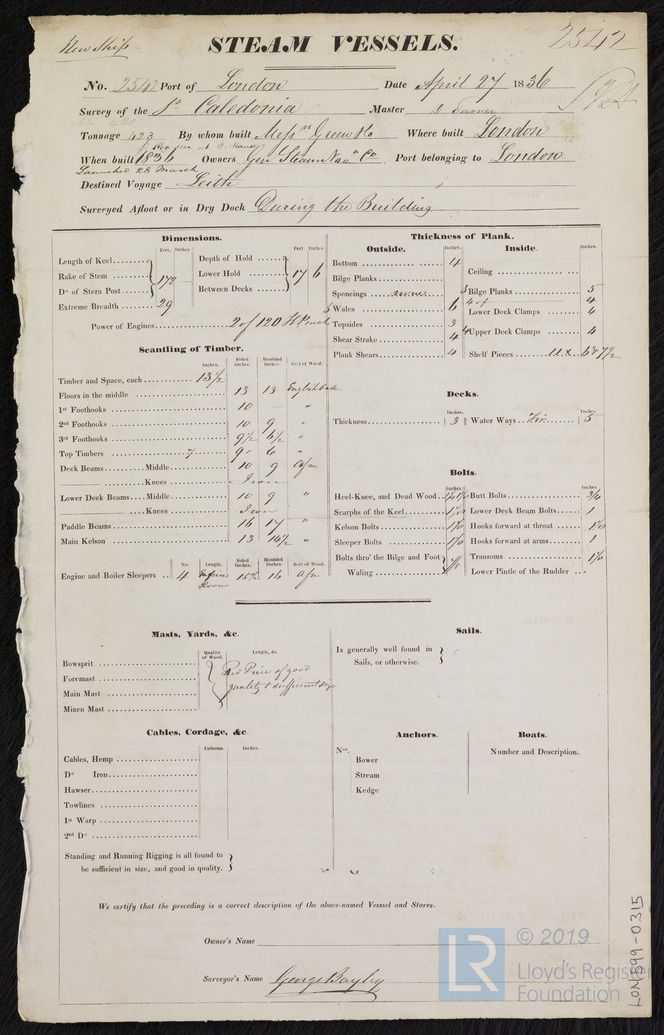 New Ship
STEAM VESSELS.
2542
No. 2542 Port of London Date April 27 1836
Survey of the Sr. Caledonia Master
Tonnage 423 By whom built Messrs Green & Co Where built London
When built 1836 Owners Gen Steam Nav. Co Port belonging to London
Launched 28 March
Destined Voyage Leith
Surveyed Afloat or in Dry Dock During the Building
Dimensions.
Feet. Inches.
Length of Keel
Rake of Stem
Do of Stern Post
172
Extreme Breadth 29
Feet. Inches.
Depth of Hold
Lower Hold
Between Decks
17 6
Power of Engines 2 of 120 H P each
Scantling of Timber.
Inches.
Sided Inches. Moulded Inches. Sort of Wood.
Timber and Space, each 13 1/2
Floors in the middle 13 13 English Oak
1st Foothooks 10 "
2nd Foothooks 10 9 "
3rd Foothooks 9 1/2
Top Timbers 9 6 "
Deck Beams Middle 10 9
Knees Iron
Lower Deck Beams Middle 10 9 "
Knees Iron
Paddle Beams 16 17 "
Main Kelson 13 "
No. Length. Sided Inches. Moulded Inches. Sort of Wood.
Engine and Boiler Sleepers 4 Engine Room 16
Thickness of Plank.
Outside.
Inches.
Bottom 4
Bilge Planks
Sponcings
Wales 6
Topsides 3
Shear Strake 4
Plank Shears 4
Inside.
Inches.
Ceiling
Bilge Planks 5
4
Lower Deck Clamps 4
Upper Deck Clamps 4
Shelf Pieces
Decks.
Inches.
Thickness 3
Inches.
Water Ways Fir 5
Bolts.
Inches.
Heel-Knee, and Dead Wood
Scarphs of the Keel
Kelson Bolts
Sleeper Bolts
Bolts thro' the Bilge and Foot
Waling
Inches.
Butt Bolts
Lower Deck Beam Bolts 1
Hooks forward at throat
Hooks forward at arms 1
Transoms
Lower Pintle of the Rudder
Masts, Yards, &c.
Quality of Wood. Length, &c
Bowsprit
Foremast
Main Mast
Mizen Mast
Red Pine of good
quality & sufficient size
Sails.
Is generally well found in
Sails, or otherwise.
Cables, Cordage, &c.
Fathoms. Inches.
Cables, Hemp
Do Iron
Hawser
Towlines
1st Warp
2nd Do
Standing and Running Rigging is all found to
be sufficient in size, and good in quality.
Anchors.
Nos.
Bower
Stream
Kedge
Boats.
Number and Description.
We certify that the preceding is a correct description of the above-named Vessel and Stores.
Owner's Name
Surveyor's Name George Bayley
LR © 2019
Lloyd's Register
Foundation
LON599-0315